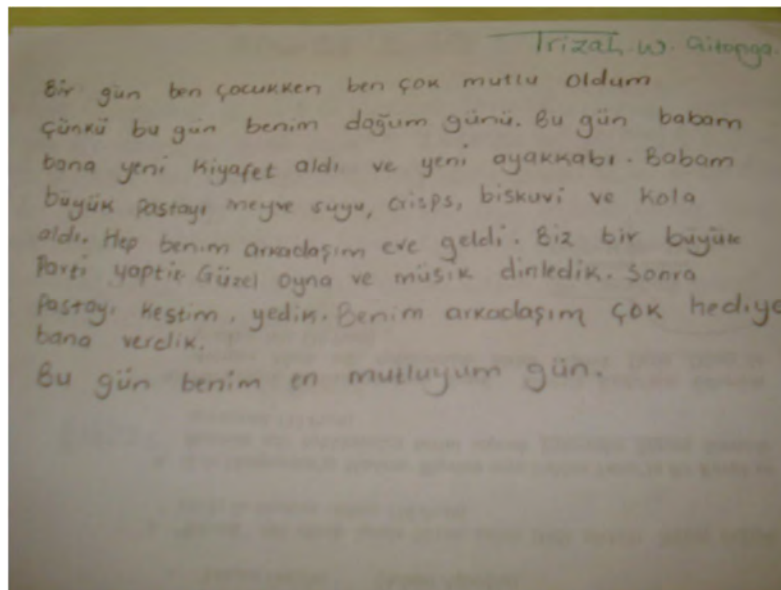 Trizah .W. Gitonga.
Bir gün ben çocukken ben çok mutlu oldum
çünkü bu gün benim doğum günü. Bu gün babam
bana yeni kiyafet aldı ve yeni ayakkabı. Babam
büyük pastayı meyve suyu, crisps, biskuvi ve kola
aldı. Hep benim arkadaşım eve geldi. Biz bir büyük
Parti yaptik Güzel oyna ve müsik dinledik. Sonra
pastayı kestim, yedik. Benim arkadaşım çok hediye
bana verdik.
Bu gün benim en mutluyum gün.